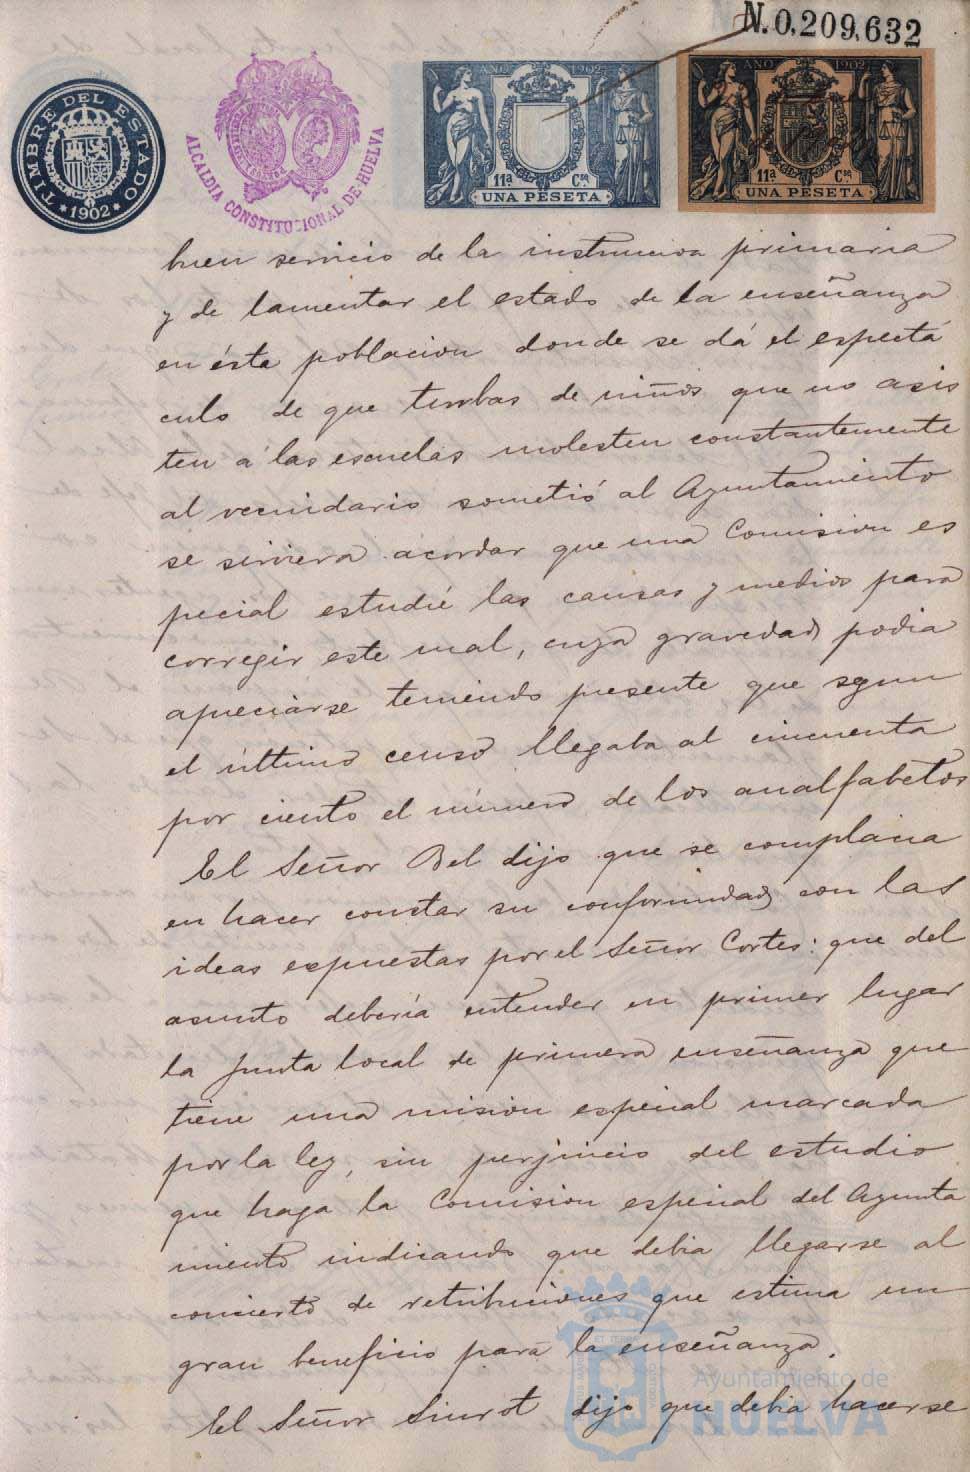 N. 0,209,632
TIMBRE DEL ESTADO
*1902*
ALCALDIA CONSTITUCIONAL DE HUELVA
AÑO 1902
11ª Cªs
UNA PESETA
AÑO 1902
11ª Cªs
UNA PESETA
buen servicio de la instruccion primaria
y de lamentar el estado de la enseñanza
en ésta poblacion donde se dá el espectá
culo de que turbas de niños que no asis
ten á las escuelas molesten constantemente
al vecindario sometió al Ayuntamiento
se sirviera acordar que una Comision es
pecial estudié las causas y medios para
corregir este mal, cuya gravedad podia
apreciarse teniendo presente que segun
el último censo llegaba al cincuenta
por ciento el número de los analfabetos
El Señor Bel dijo que se complacia
en hacer constar su conformidad con las
ideas espuestas por el Señor Cortes: que del
asunto debería entender en primer lugar
la Junta local de primera enseñanza que
tiene una mision especial marcada
por la ley, sin perjuicio del estudio
que haga la Comision especial del Ayunta
miento indicando que debia llegarse al
concierto de retribuciones que estima un
gran beneficio para la enseñanza.
El Señor Siurot dijo que debia hacerse
Ayuntamiento de
HUELVA